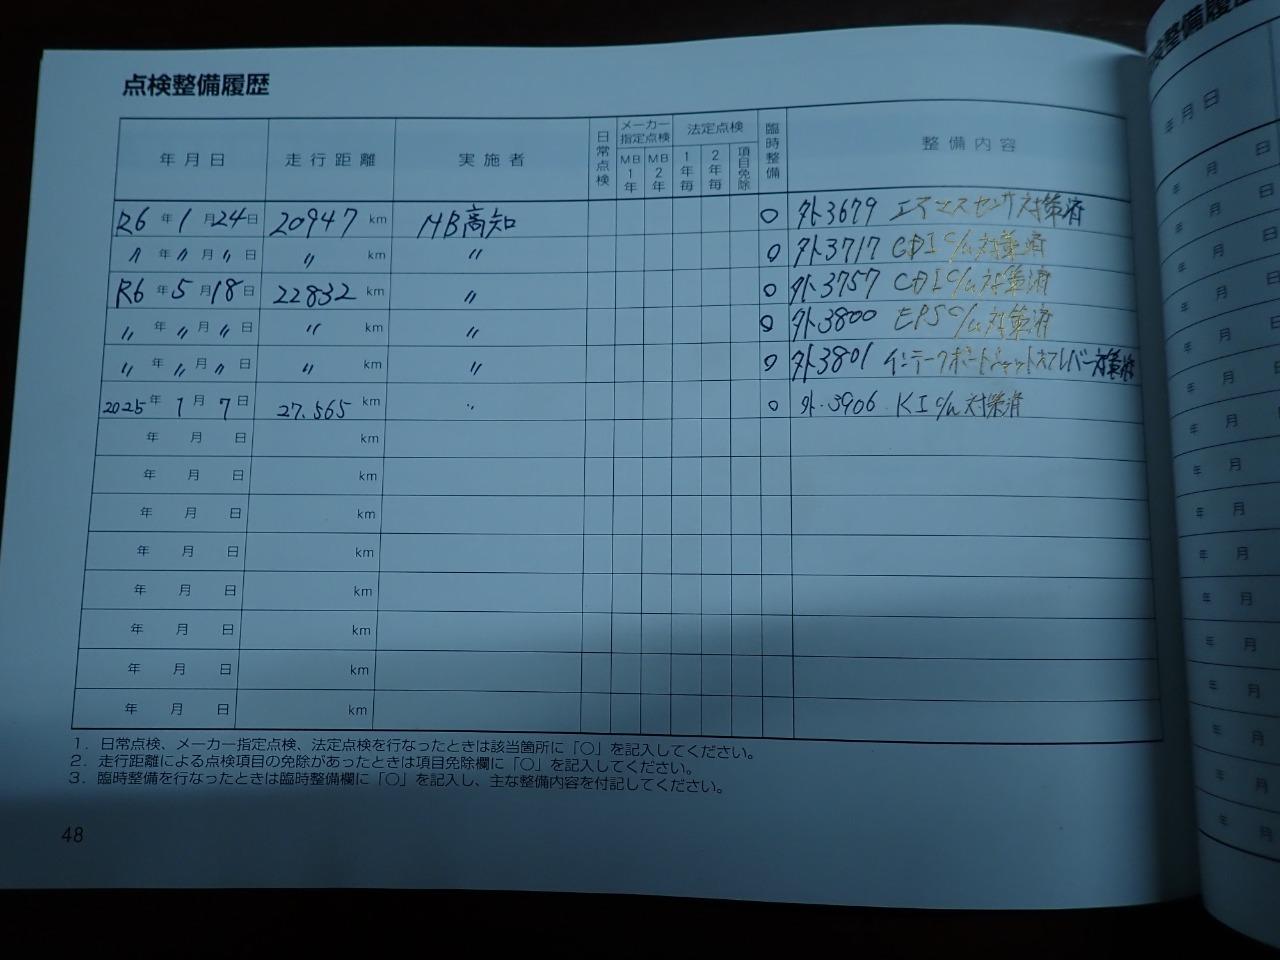 点検整備履歴
年月日 走行距離 実施者 日常点検 メーカー指定点検 MB1年 MB2年 法定点検 1年毎 2年毎 項目免除 臨時整備 整備内容
R6年1月24日 20947km MB高知 ○ 外3679 エアマスセンサ対策済
〃年〃月〃日 〃km 〃 ○ 外3717 CDI C/U対策済
R6年5月18日 22832km 〃 ○ 外3757 CDI C/U対策済
〃年〃月〃日 〃km 〃 ○ 外3800 EPS C/U対策済
〃年〃月〃日 〃km 〃 ○ 外3801 対策済
2025年1月7日 27.565km 〃 ○ 外.3906 KI C/U対策済
年 月 日 km
年 月 日 km
年 月 日 km
年 月 日 km
年 月 日 km
年 月 日 km
年 月 日 km
年 月 日 km
1．日常点検、メーカー指定点検、法定点検を行なったときは該当箇所に「○」を記入してください。
2．走行距離による点検項目の免除があったときは項目免除欄に「○」を記入してください。
3．臨時整備を行なったときは臨時整備欄に「○」を記入し、主な整備内容を付記してください。
48
点検整備履歴
年月日
年 月 日
年 月 日
年 月 日
年 月 日
年 月 日
年 月 日
年 月
年 月
年 月
年 月
年 月
年 月
年 月
年 月
年 月
年 月
年 月
年 月